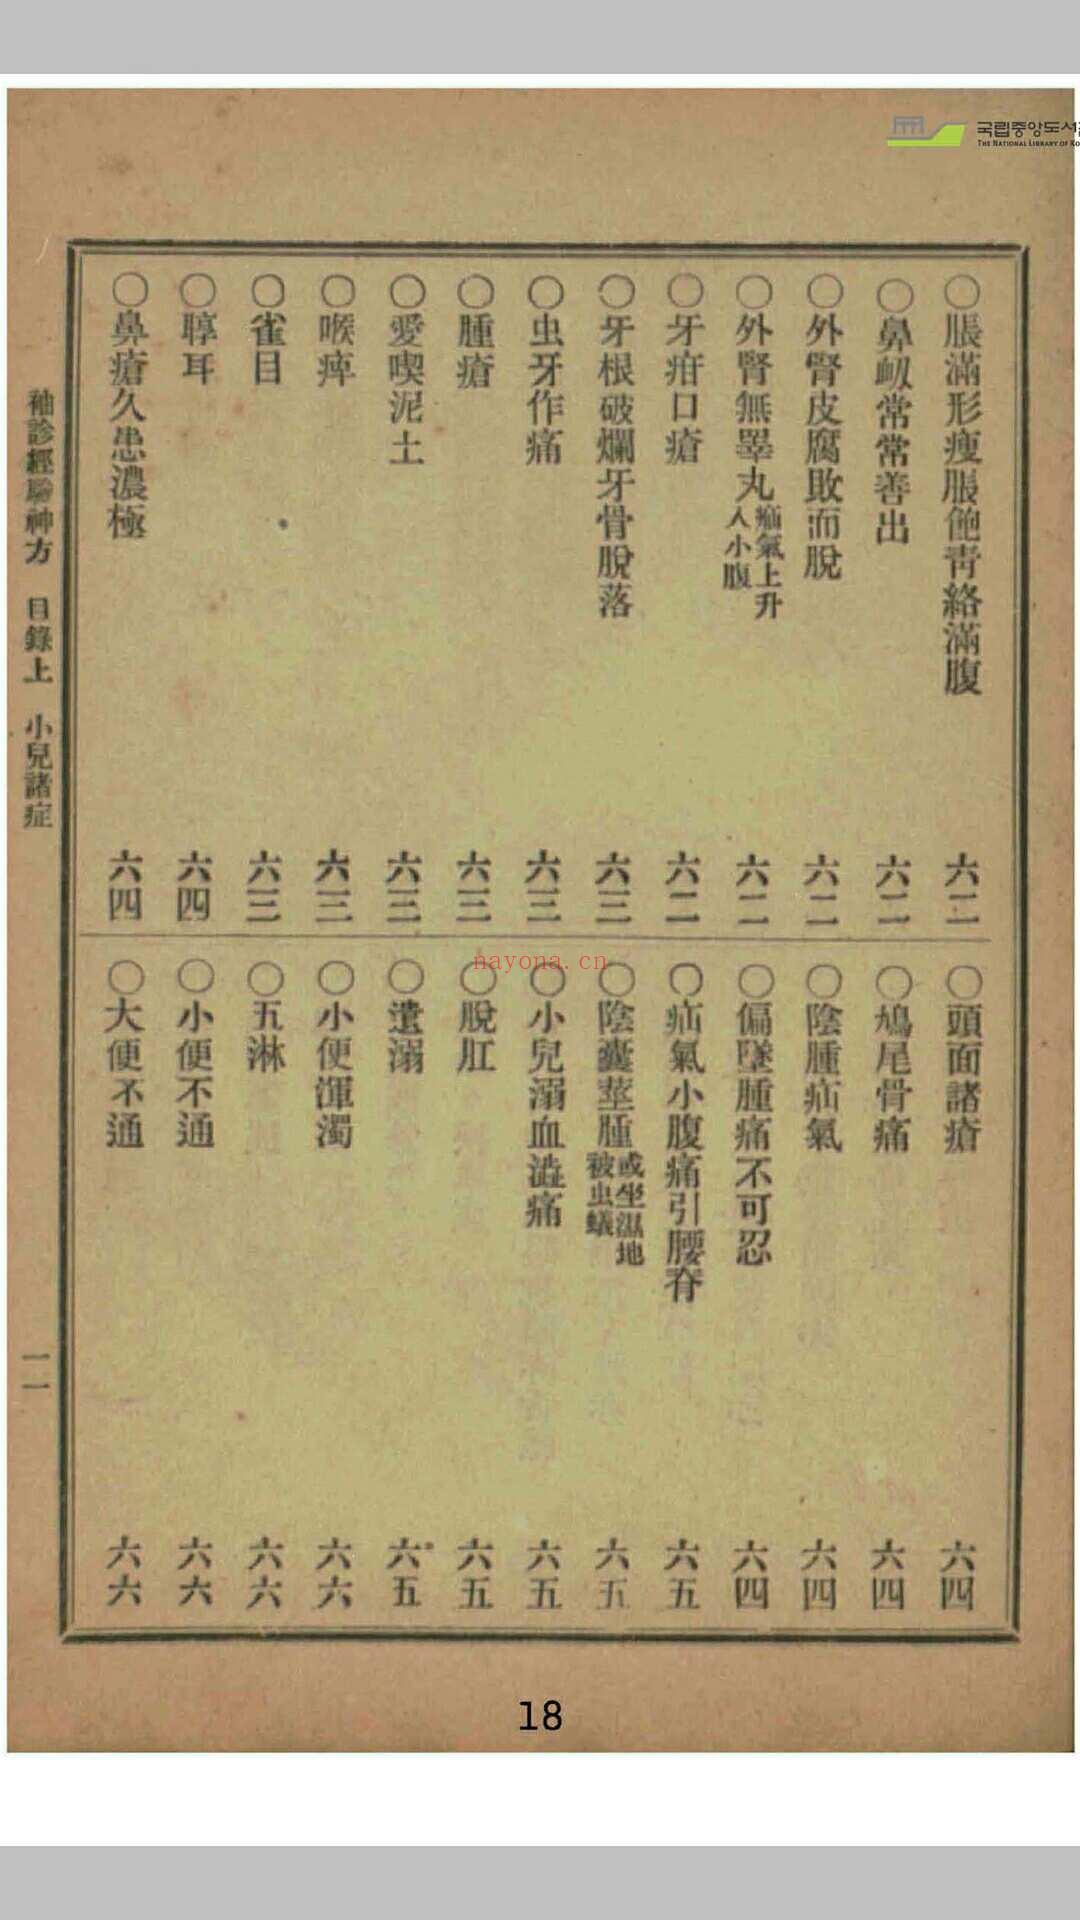 국립중앙도서관
THE NATIONAL LIBRARY OF KO
○脹滿形瘦脹飽靑絡滿腹 六二
○鼻衂常常善出 六二
○外腎皮腐敗而脫 六二
○外腎無睪丸 疝氣上升入小腹 六二
○牙疳口瘡 六二
○牙根破爛牙骨脫落 六三
○虫牙作痛 六三
○腫瘡 六三
○愛喫泥土 六三
○喉痺 六三
○雀目 六三
○聤耳 六四
○鼻瘡久患濃極 六四
○頭面諸瘡 六四
○鳩尾骨痛 六四
○陰腫疝氣 六四
○偏墜腫痛不可忍 六四
○疝氣小腹痛引腰脊 六五
○陰囊莖腫 或坐濕地被虫蟻 六五
○小兒溺血澁痛 六五
○脫肛 六五
○遺溺 六五
○小便渾濁 六六
○五淋 六六
○小便不通 六六
○大便不通 六六
袖診經驗神方 目錄上 小兒諸症 一一
nayona.cn
18